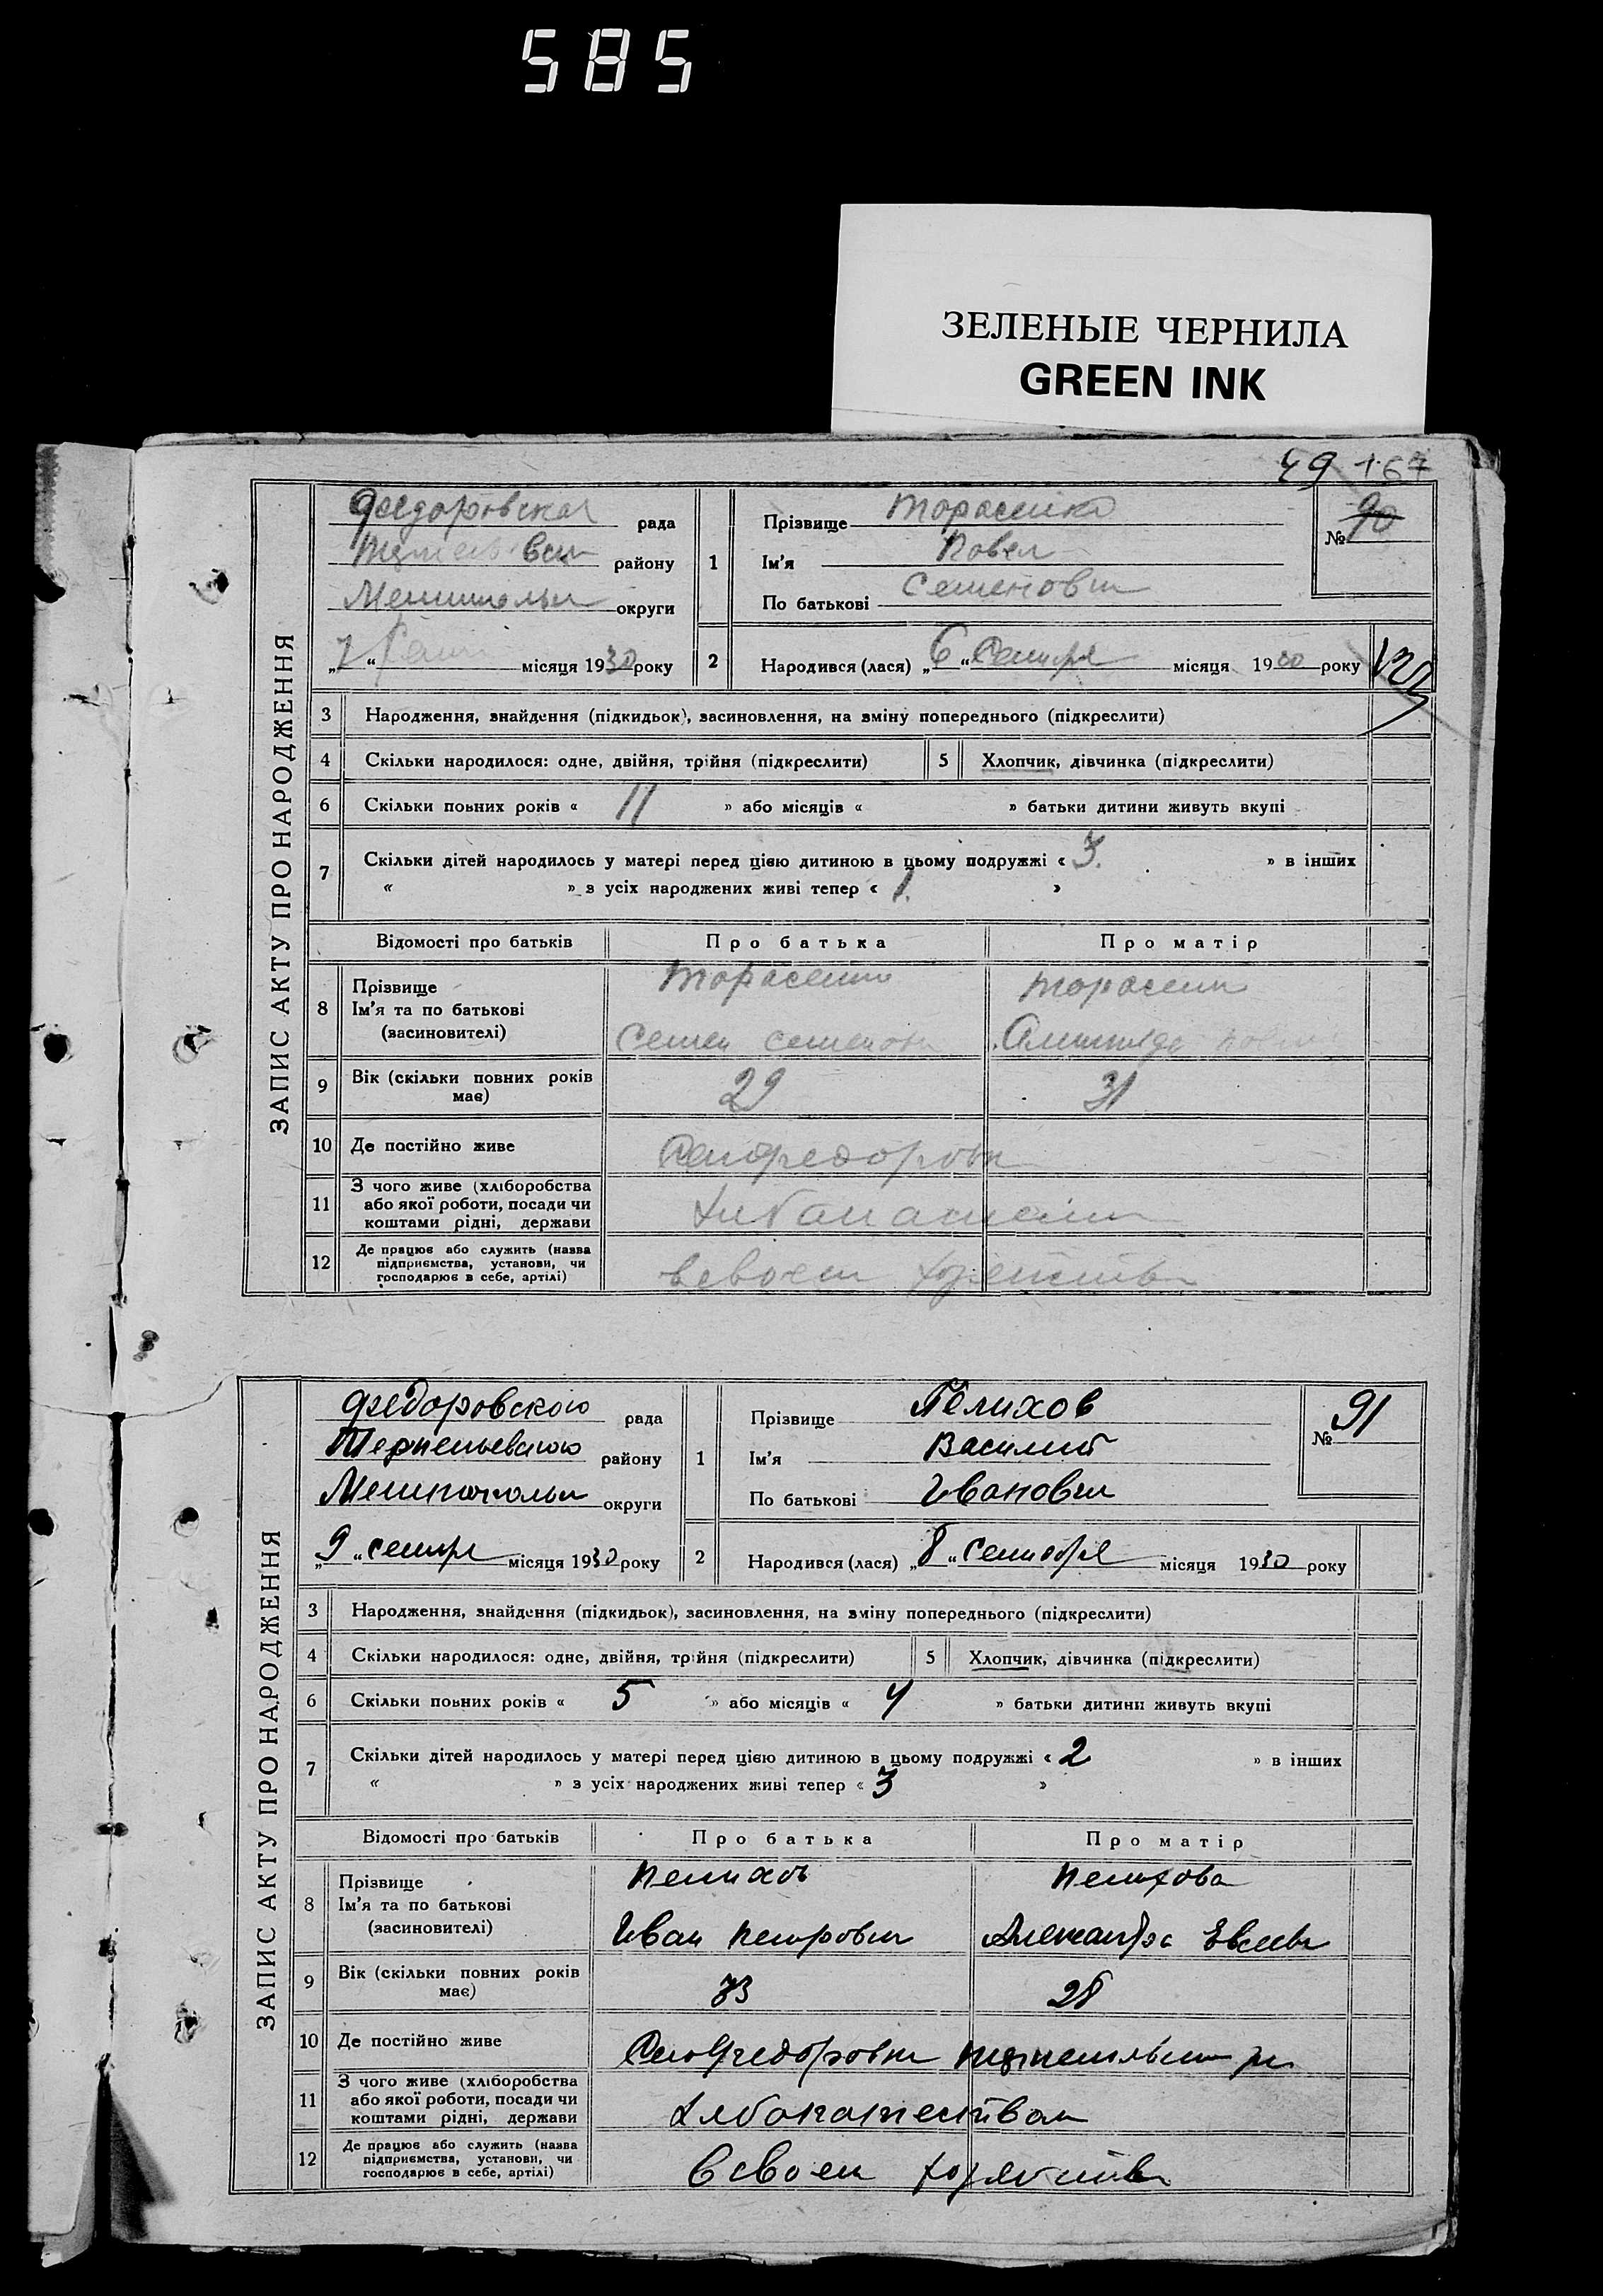 585
ЗЕЛЕНЫЕ ЧЕРНИЛА
GREEN INK
49 167
ЗАПИС АКТУ ПРО НАРОДЖЕННЯ
Федоровская рада
району
округи
„7“ місяця 1930 року
1
Прізвище Тарасенко
Ім'я Павел
По батькові Семенович
№ 90
2 Народився (лася) „6“ місяця 1930 року
3 Народження, знайдення (підкидьок), засиновлення, на зміну попереднього (підкреслити)
4 Скільки народилося: одне, двійня, трійня (підкреслити) 5 Хлопчик, дівчинка (підкреслити)
6 Скільки повних років « 11 » або місяців « » батьки дитини живуть вкупі
7 Скільки дітей народилось у матері перед цією дитиною в цьому подружжі « 3. » в інших
« » з усіх народжених живі тепер « 1. »
Відомості про батьків Про батька Про матір
8 Прізвище
Ім'я та по батькові
(засиновителі)
Семен
9 Вік (скільки повних років
має) 29 31
10 Де постійно живе
11 З чого живе (хліборобства
або якої роботи, посади чи
коштами рідні, держави
12 Де працює або служить (назва
підприємства, установи, чи
господарює в себе, артілі)
в своем
ЗАПИС АКТУ ПРО НАРОДЖЕННЯ
Федоровскою рада
району
округи
„9“ місяця 1930 року
1
Прізвище Пелихов
Ім'я Василий
По батькові Иванович
№ 91
2 Народився (лася) „8“ сентября місяця 1930 року
3 Народження, знайдення (підкидьок), засиновлення, на зміну попереднього (підкреслити)
4 Скільки народилося: одне, двійня, трійня (підкреслити) 5 Хлопчик, дівчинка (підкреслити)
6 Скільки повних років « 5 » або місяців « 4 » батьки дитини живуть вкупі
7 Скільки дітей народилось у матері перед цією дитиною в цьому подружжі « 2 » в інших
« » з усіх народжених живі тепер « 3 »
Відомості про батьків Про батька Про матір
8 Прізвище Пелихов Пелихова
Ім'я та по батькові
(засиновителі) Иван Петрович Александра
9 Вік (скільки повних років
має) 33 28
10 Де постійно живе
11 З чого живе (хліборобства
або якої роботи, посади чи
коштами рідні, держави
12 Де працює або служить (назва
підприємства, установи, чи
господарює в себе, артілі)
в своем